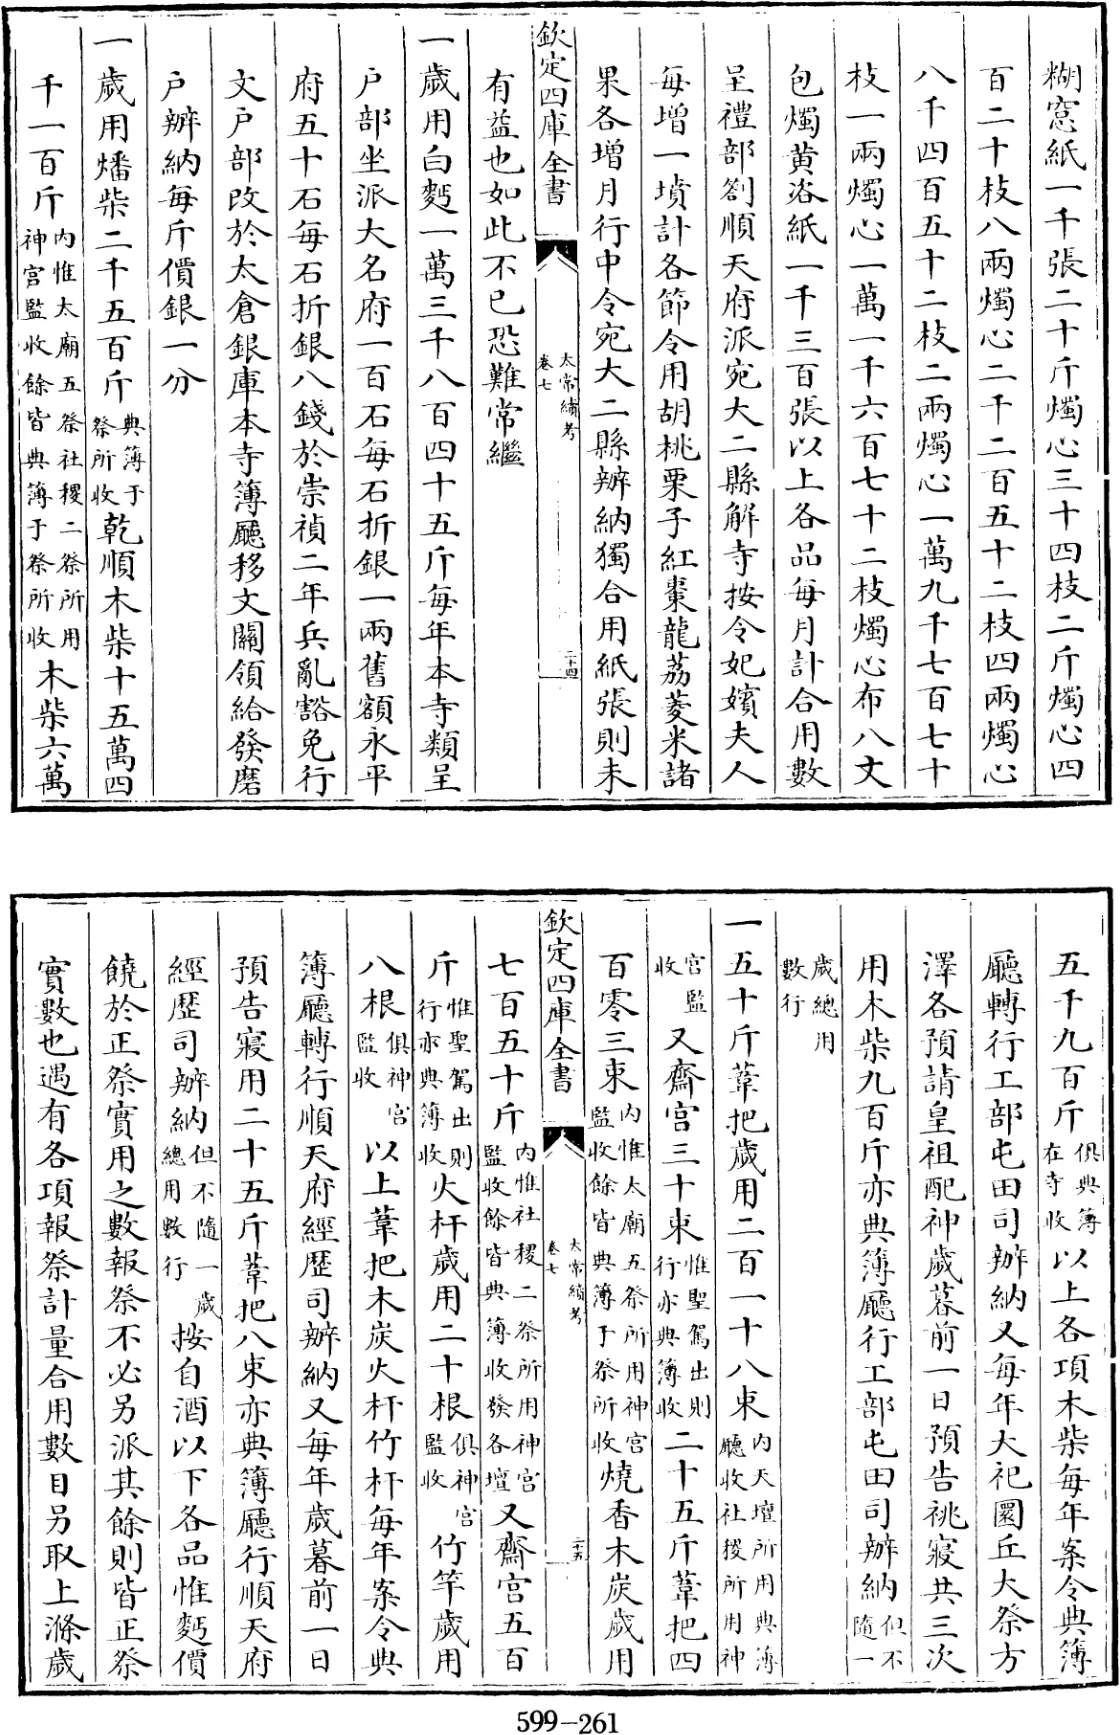 糊窓紙一千張二十斤燭心三十四枝二斤燭心四
百二十枝八兩燭心二千二百五十二枝四兩燭心
八千四百五十二枝二兩燭心一萬九千七百七十
枝一兩燭心一萬一千六百七十二枝燭心布八丈
包燭黄咨紙一千三百張以上各品每月計合用數
呈禮部劄順天府派宛大二縣解寺按令妃嬪夫人
每增一墳計各節令用胡桃栗子紅棗龍荔菱米諸
果各增月行中令宛大二縣辦納獨合用紙張則未
欽定四庫全書
太常續考
卷七
二十四
有益也如此不已恐難常繼
一歲用白麪一萬三千八百四十五斤每年本寺類呈
户部坐派大名府一百石每石折銀一兩舊額永平
府五十石每石折銀八錢於崇禎二年兵亂豁免行
文户部改於太倉銀庫本寺簿廳移文關領給發磨
户辦納每斤價銀一分
一歲用燔柴二千五百斤典簿于祭所收乾順木柴十五萬四
千一百斤内惟太廟五祭社稷二祭所用神宫監收餘皆典簿于祭所收木柴六萬
五千九百斤俱典簿在寺收以上各項木柴每年案令典簿
廳轉行工部屯田司辦納又每年大祀圜丘大祭方
澤各預請皇祖配神歲暮前一日預告祧寢共三次
用木柴九百斤亦典簿廳行工部屯田司辦納但不隨一
歲總用數行
一五十斤葦把歲用二百一十八束内天壇所用典簿廳收社稷所用神
宫監收又齋宫三十束惟聖駕出則行亦典簿收二十五斤葦把四
百零三束内惟太廟五祭所用神宫監收餘皆典簿于祭所收燒香木炭歲用
欽定四庫全書
太常續考
卷七
二十五
七百五十斤内惟社稷二祭所用神宫監收餘皆典簿收發各壇又齋宫五百
斤惟聖駕出則行亦典簿收火杆歲用二十根俱神宫監收竹竿歲用
八根俱神宫監收以上葦把木炭火杆竹杆每年案令典
簿廳轉行順天府經歷司辦納又每年歲暮前一日
預告寢用二十五斤葦把八束亦典簿廳行順天府
經歷司辦納但不隨一歲總用數行按自酒以下各品惟麪價
饒於正祭實用之數報祭不必另派其餘則皆正祭
實數也遇有各項報祭計量合用數目另取上滌歲
599-261